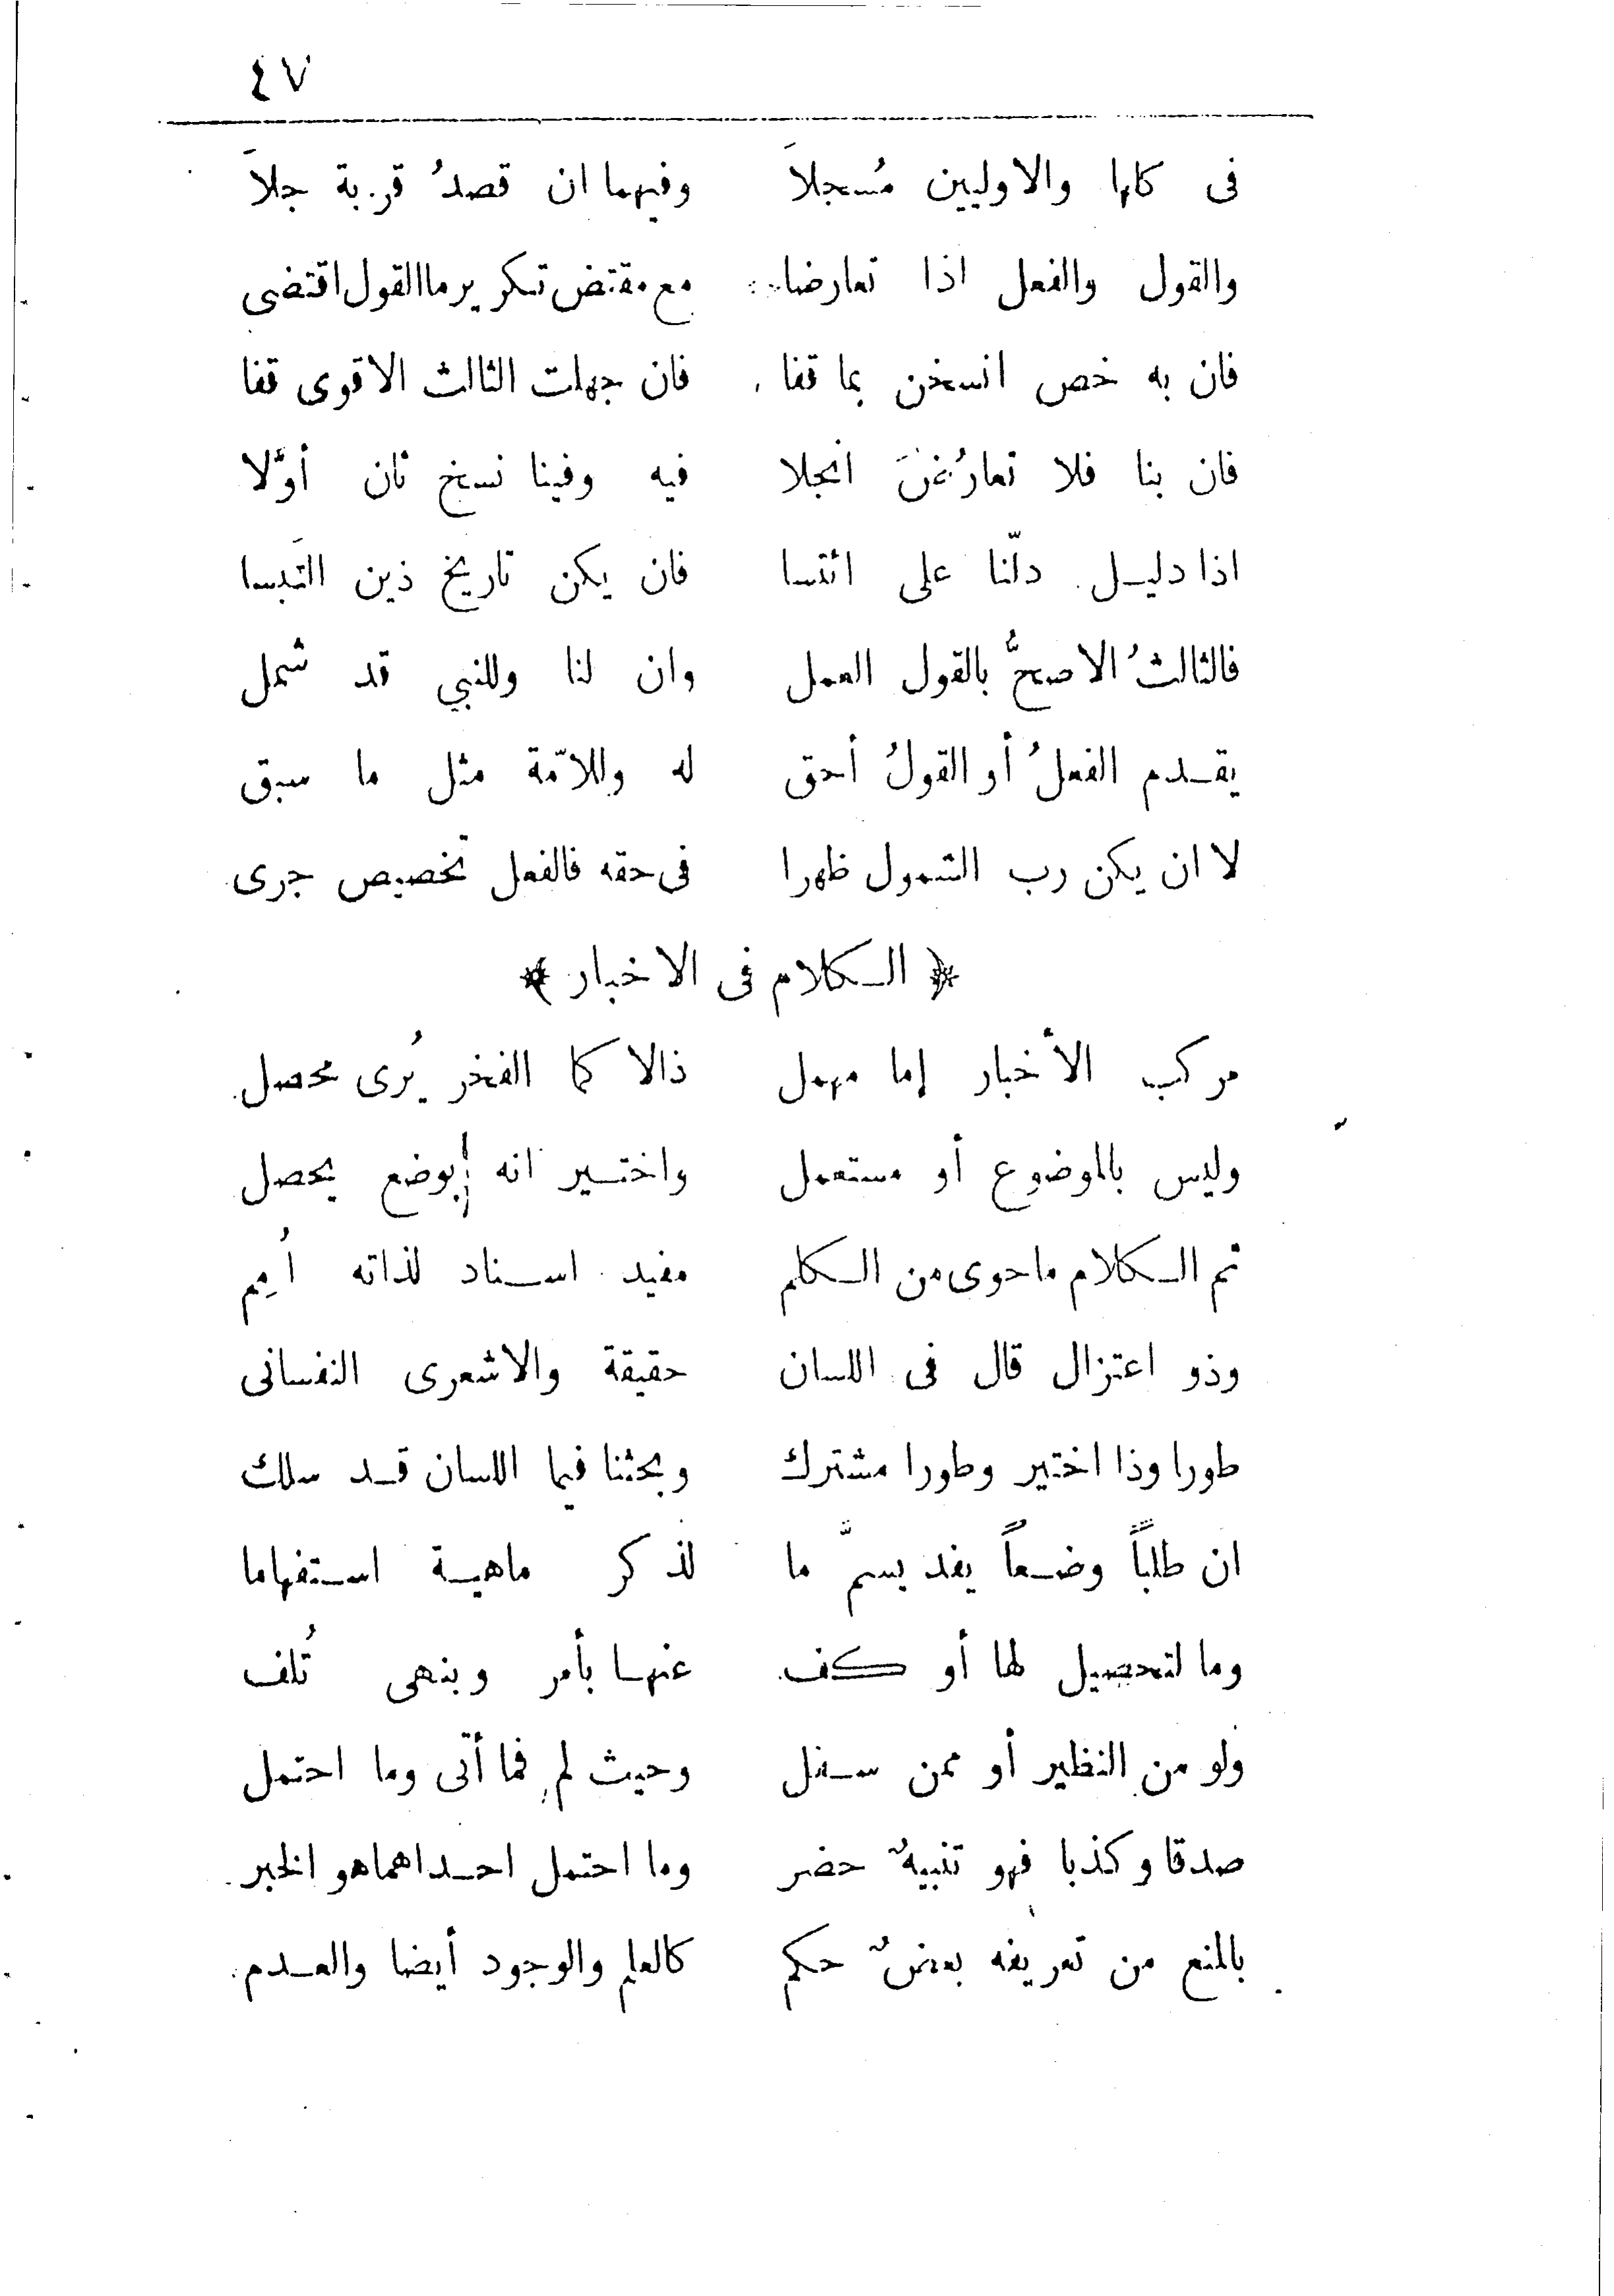 ٤٧
فى كلها والاوليين مُسجلاَ وفيهما ان قصدُ قربة جلاَ
والقول والفعل اذا تعارضا مع مقتض تكرير ما القول اقتضى
فان به خص انسخن بما قفا فان جهلت الثالث الاقوى قفا
فان بنا فلا تعارُضَ انجلا فيه وفينا نسخ ثان أوَّلا
اذا دليل دلّنا على ائتسا فان يكن تاريخ ذين التَبسا
فالثالثُ الاصحُّ بالقول العمل وان لنا وللنبي قد شمل
يقدم الفعلُ أو القولُ أحق له وللامّة مثل ما سبق
لا ان يكن رب الشمول ظهرا فى حقه فالفعل تخصيص جرى
﴿ الكلام فى الاخبار ﴾
مركب الأخبار إما مهمل ذالا كما الفخر يُرى محصل
وليس بالموضوع أو مستعمل واختير انه بوضع يحصل
ثم الكلام ما حوى من الكلم مفيد اسناد لذاته أُمِم
وذو اعتزال قال فى اللسان حقيقة والاشعرى النفسانى
طورا وذا اختير وطورا مشترك وبحثنا فيما اللسان قد سلك
ان طلباً وضعاً يفد بسمَّ ما لذكر ماهية استفهاما
وما لتحصيل لها أو كف عنها بأمر وبنهى تُلف
ولو من النظير أو ممن سفل وحيث لم فما أتى وما احتمل
صدقا وكذبا فهو تنبيهٌ حضر وما احتمل احداهما هو الخبر
بالمنع من تعريفه بعضٌ حكم كالعلم والوجود أيضا والعدم